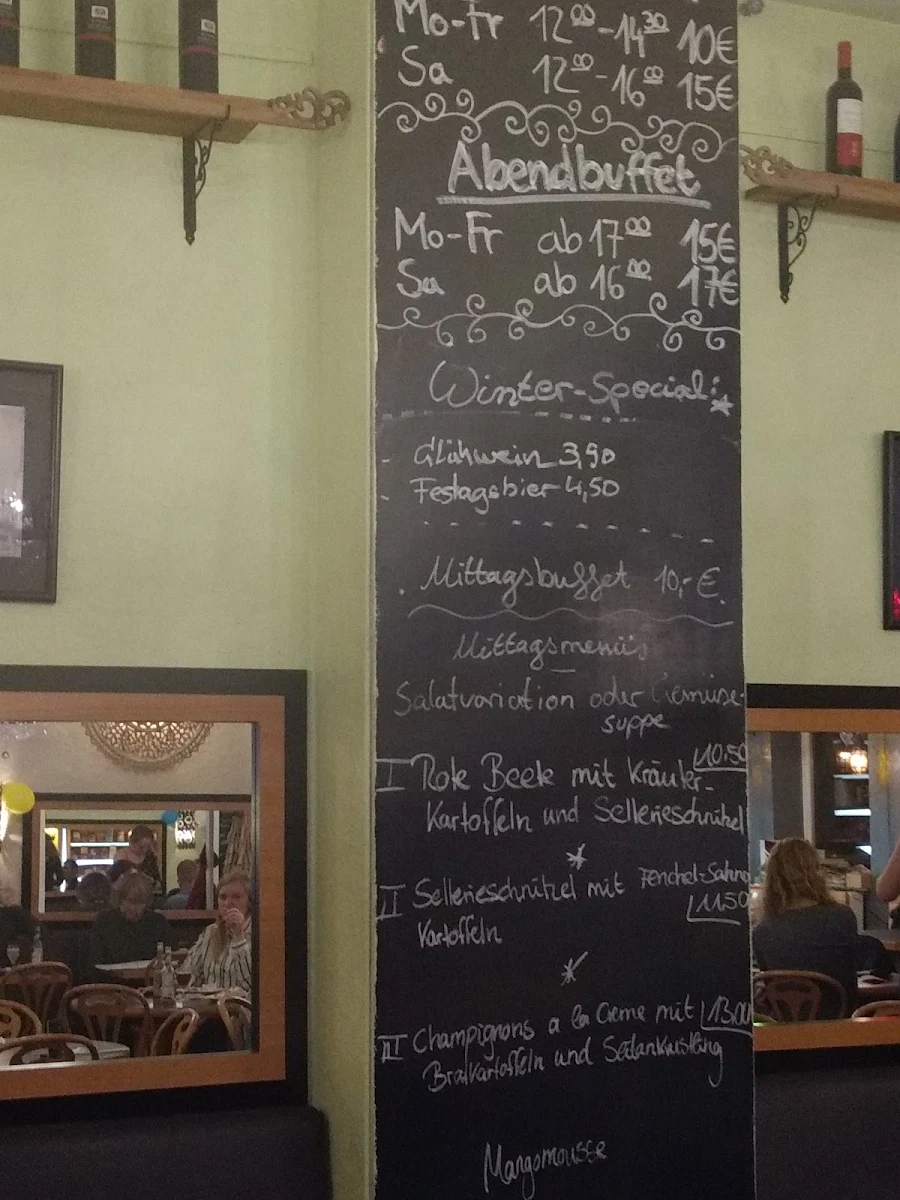 Mo-Fr 12⁰⁰-14³⁰ 10€
Sa 12⁰⁰-16⁰⁰ 15€
Abendbuffet
Mo-Fr ab 17⁰⁰ 15€
Sa ab 16⁰⁰ 17€
Winter-Special:
- Glühwein 3,90
- Festagsbier 4,50
Mittagsbuffet 10,-€
Mittagsmenüs
Salatvariation oder Gemüse-
suppe
I Rote Beete mit Kräuter- 10.50
Kartoffeln und Sellerieschnitzel
II Sellerieschnitzel mit Fenchel-Sahne
Kartoffeln 11.50
III Champignons a la Creme mit 13.00
Bratkartoffeln und
Mangomousse